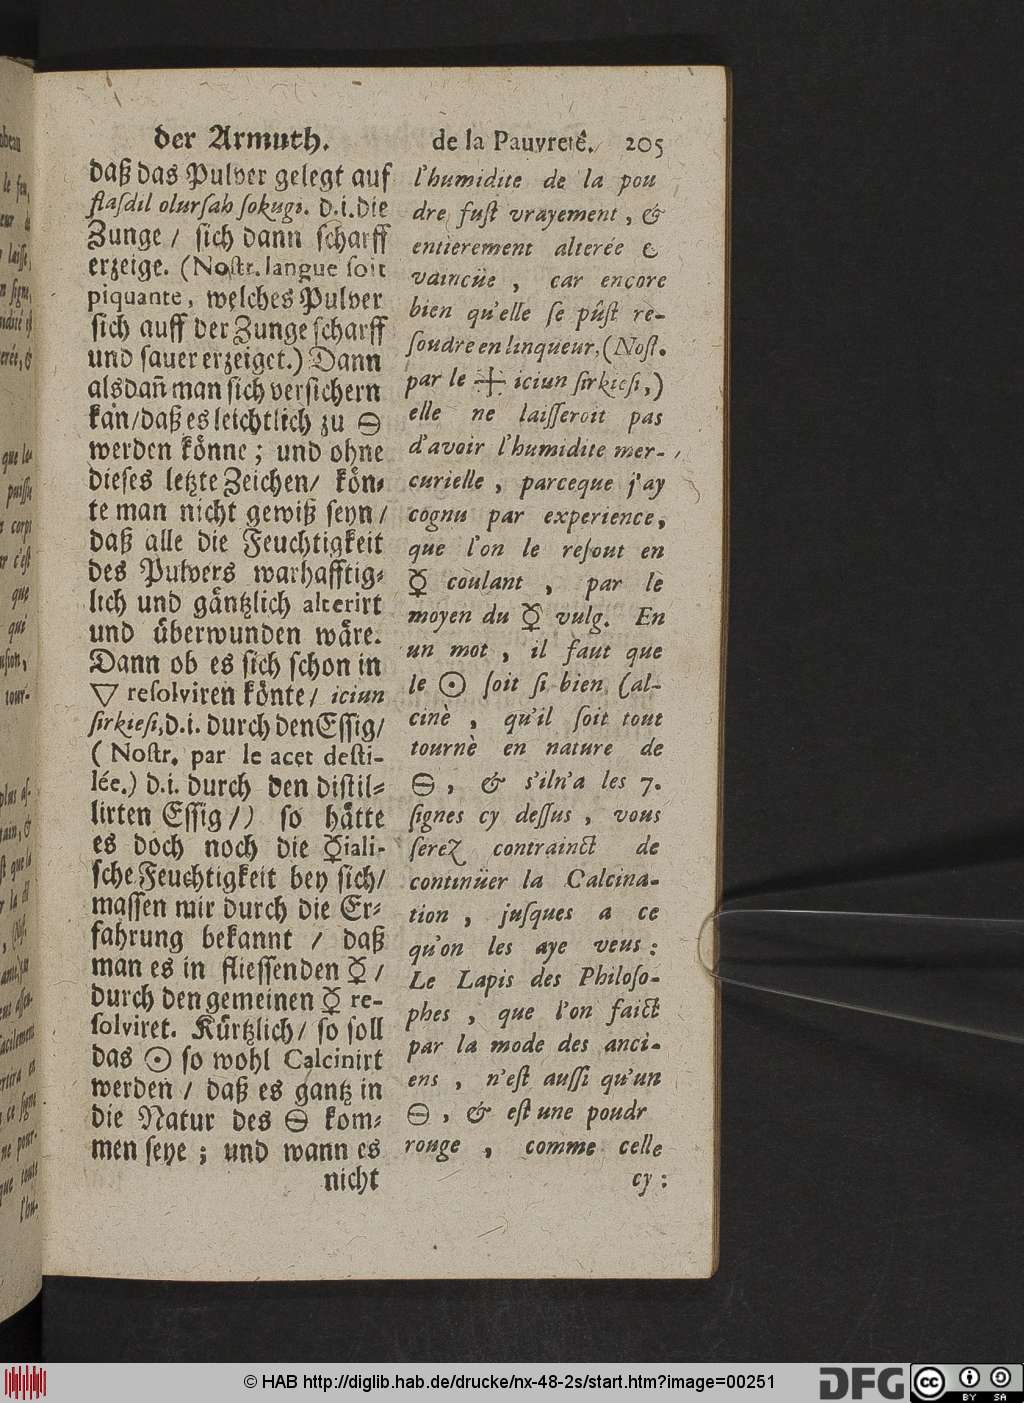 der Armuth.
daß das Pulver gelegt auf
flasdil olursah sokugi. d.i. die
Zunge / sich dann scharff
erzeige. (Nostr. langue soit
piquante, welches Pulver
sich auff der Zunge scharff
und sauer erzeiget.) Dann
alsdañ man sich versichern
kan/daß es leichtlich zu 🜔
werden könne; und ohne
dieses letzte Zeichen/ kön⸗
te man nicht gewiß seyn/
daß alle die Feuchtigkeit
des Pulvers warhafftig⸗
lich und gäntzlich alterirt
und überwunden wäre.
Dann ob es sich schon in
🜄 resolviren könte/ iciun
sirkiesi, d.i. durch den Essig/
(Nostr. par le acet desti-
lée.) d.i. durch den distil⸗
lirten Essig/) so hätte
es doch noch die ☿iali-
sche Feuchtigkeit bey sich/
massen mir durch die Er⸗
fahrung bekannt / daß
man es in fliessenden ☿ /
durch den gemeinen ☿ re-
solviret. Kürtzlich/ so soll
das ☉ so wohl Calcinirt
werden / daß es gantz in
die Natur des 🜔 kom⸗
men seye; und wann es
nicht
de la Pauvreté. 205
l'humidite de la pou
dre fust vrayement, &
entierement alterée &
vaincüe, car encore
bien qu'elle se pûst re-
soudre en linqueur, (Nost.
par le 🜊 iciun sirkiesi,)
elle ne laisseroit pas
d'avoir l'humidite mer-
curielle, parceque j'ay
cognu par experience,
que l'on le resout en
☿ coulant, par lè
moyen du ☿ vulg. En
un mot, il faut que
le ☉ soit si bien (al-
cinè, qu'il soit tout
tournè en nature de
🜔, & s'iln'a les 7.
signes cy dessus, vous
serez contrainct de
continüer la Calcina-
tion, jusques a ce
qu'on les aye veus:
Le Lapis des Philoso-
phes, que l'on faict
par la mode des anci-
ens, n'est aussi qu'un
🜔, & est une poudr
rouge, comme celle
cy:
le feu,
laisse,
que le-
puisse
corps
c'est
que
qui
tour-
plus as-
que la
ce signe
pour-
que toute
l'hu-
© HAB http://diglib.hab.de/drucke/nx-48-2s/start.htm?image=00251
DFG
cc BY SA